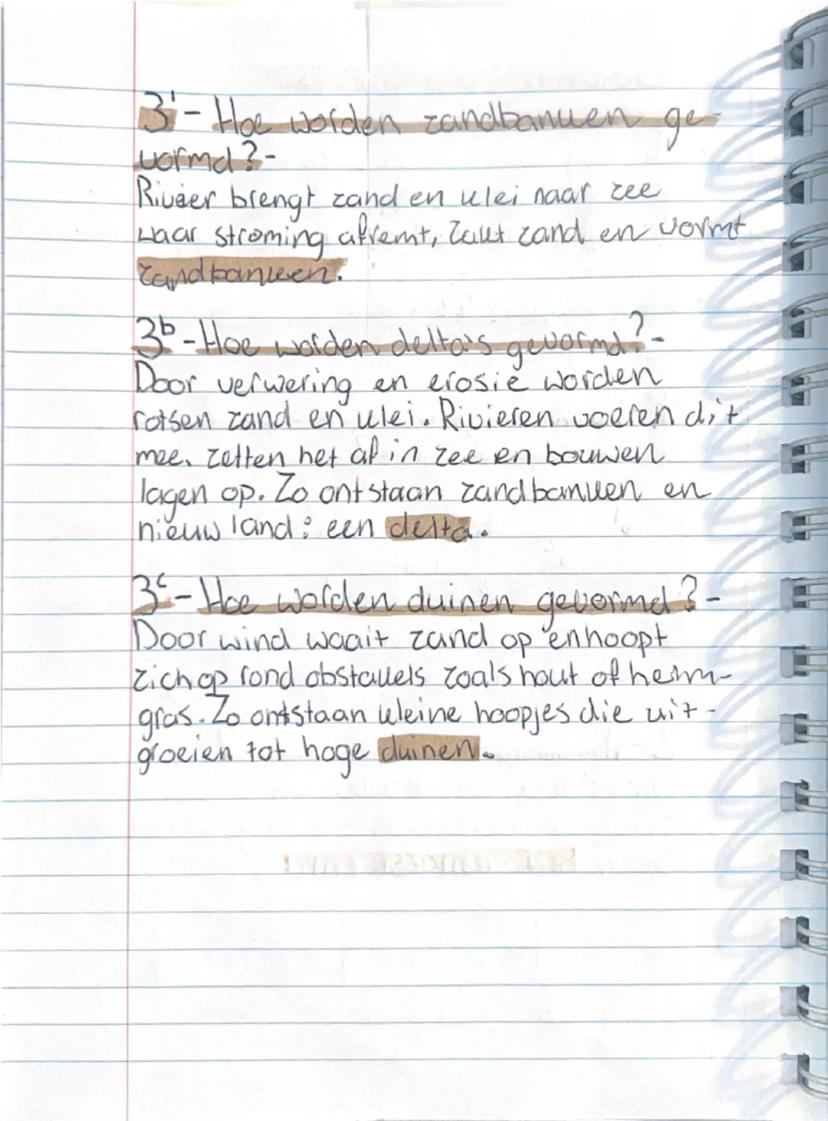 3¹ - Hoe worden zandbanken ge-
vormd? -
Rivier brengt zand en klei naar zee
waar stroming afremt, zakt zand en vormt
zandbanken.
3ᵇ - Hoe worden delta's gevormd? -
Door verwering en erosie worden
rotsen zand en klei. Rivieren voeren dit
mee, zetten het af in zee en bouwen
lagen op. Zo ontstaan zandbanken en
nieuw land: een delta.
3ᶜ - Hoe worden duinen gevormd? -
Door wind waait zand op en hoopt
zich op rond obstakels zoals hout of helm-
gras. Zo ontstaan kleine hoopjes die uit-
groeien tot hoge duinen.